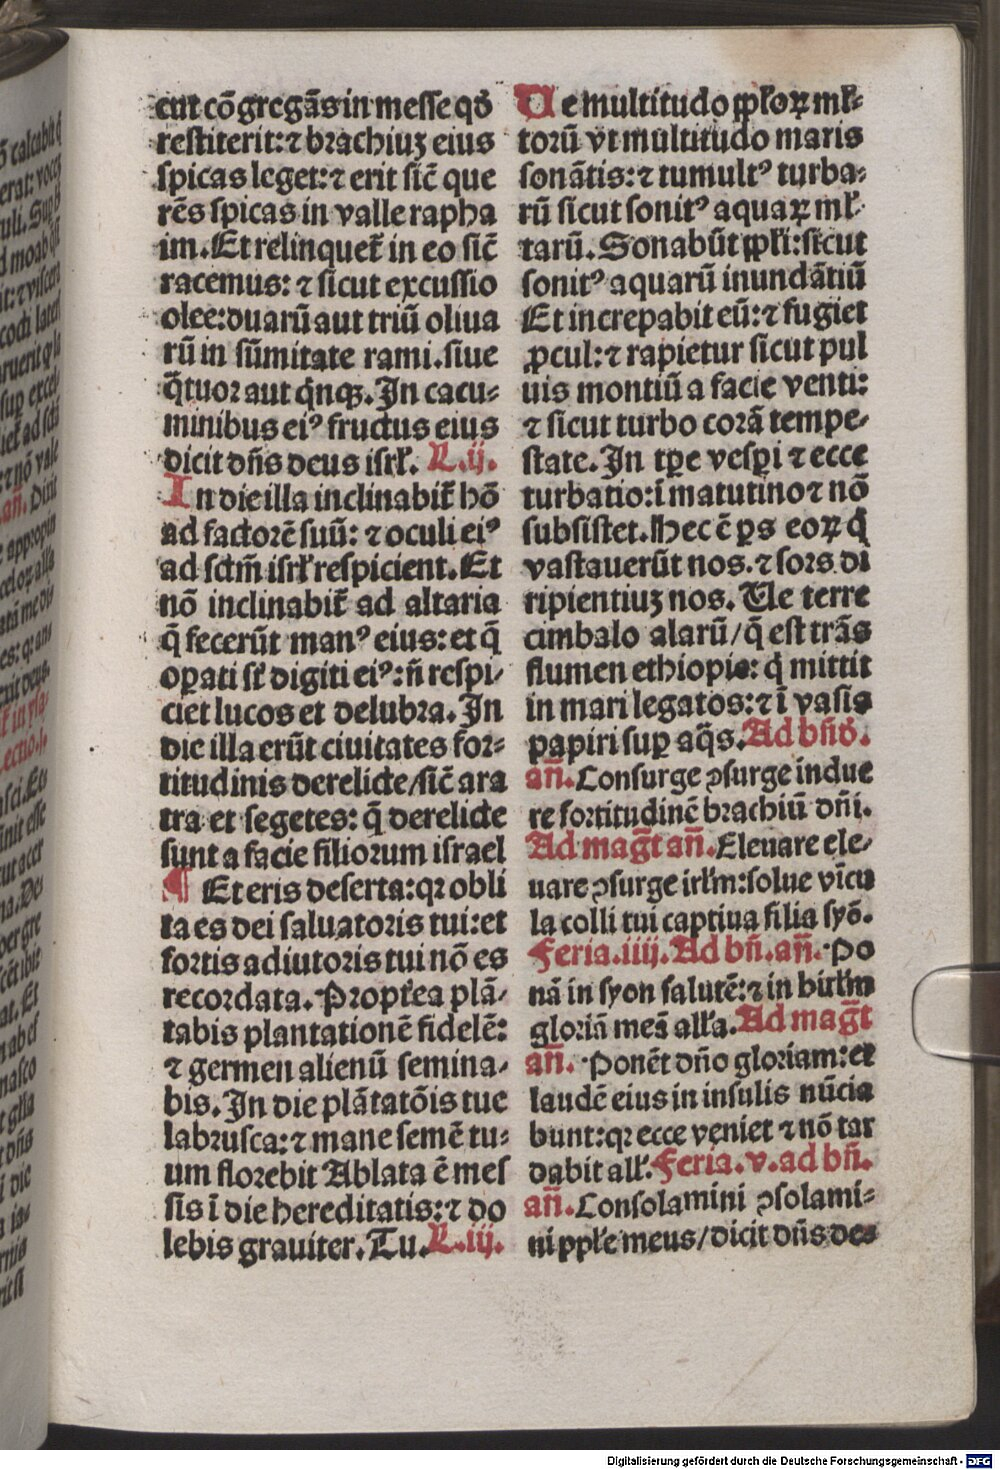 cut cōgregās in messe qd
restiterit: ⁊ brachiuꝫ eius
spicas leget: ⁊ erit sic̄ que
rēs spicas in valle rapha
im. Et relinquet̄ in eo sic̄
racemus: ⁊ sicut excussio
olee: duarū aut triū oliua
rū in sūmitate rami. siue
q̄tuor aut q̄nqꝫ. In cacu-
minibus eiꝰ fructus eius
dicit dn̄s deus isrł. L.ij.
In die illa inclinabit̄ hō
ad factorē suū: ⁊ oculi eiꝰ
ad sctm̄ isrł respicient. Et
nō inclinabit̄ ad altaria
q̄ fecerūt manꝰ eius: et q̄
oꝑati st̄ digiti eiꝰ: n̄ respi/
ciet lucos et delubra. In
die illa erūt ciuitates for-
titudinis derelicte/sic̄ ara
tra et segetes: q̄ derelicte
sunt a facie filiorum israel
¶ Et eris deserta: qꝛ obli
ta es dei saluatoris tui: et
fortis adiutoris tui nō es
recordata. Propt̄ea plā/
tabis plantationē fidelē:
⁊ germen alienū semina/
bis. In die plātatōis tue
labrusca: ⁊ mane semē tu-
um florebit Ablata ē mes
sis ī die hereditatis: ⁊ do
lebis grauiter. Tu. L.iij.
Ue multitudo ppłoꝝ mł-
torū vt multitudo maris
sonātis: ⁊ tumultꝰ turba-
rū sicut sonitꝰ aquaꝝ mł-
tarū. Sonabūt ppłi: sicut
sonitꝰ aquarū inundātiū
Et increpabit eū: ⁊ fugiet
ꝓcul: ⁊ rapietur sicut pul
uis montiū a facie venti:
⁊ sicut turbo corā tempe/
state. In tꝑe vesꝑi ⁊ ecce
turbatio: ī matutino ⁊ nō
subsistet. Hec ē ꝑs eoꝝ q̄
vastauerūt nos. ⁊ sors di
ripientiuꝫ nos. Ue terre
cimbalo alarū/q̄ est trās
flumen ethiopie: q̄ mittit
in mari legatos: ⁊ ī vasis
papiri suꝑ aq̄s. Ad bn̄d.
an̄. Consurge ꝯsurge indue
re fortitudinē brachiū dn̄i.
Ad mag̅t an̄. Eleuare ele/
uare ꝯsurge irłm: solue vīcu
la colli tui captiua filia syō.
Feria.iiij. Ad bn̄. an̄. Po
nā in syon salutē: ⁊ in hirłm
gloriā meā alła. Ad mag̅t
an̄. Ponēt dn̄o gloriam: et
laudē eius in insulis nūcia
bunt: qꝛ ecce veniet ⁊ nō tar
dabit ałł. Feria.v. ad bn̄.
an̄. Consolamini ꝯsolami-
ni ppłe meus/dicit dn̄s de⁹
Digitalisierung gefördert durch die Deutsche Forschungsgemeinschaft - DFG